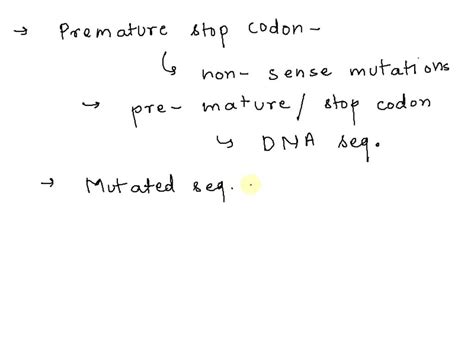 → Premature stop codon -
↳ non-sense mutations
→ pre-mature/stop codon
↳ DNA seq.
→ Mutated seq.